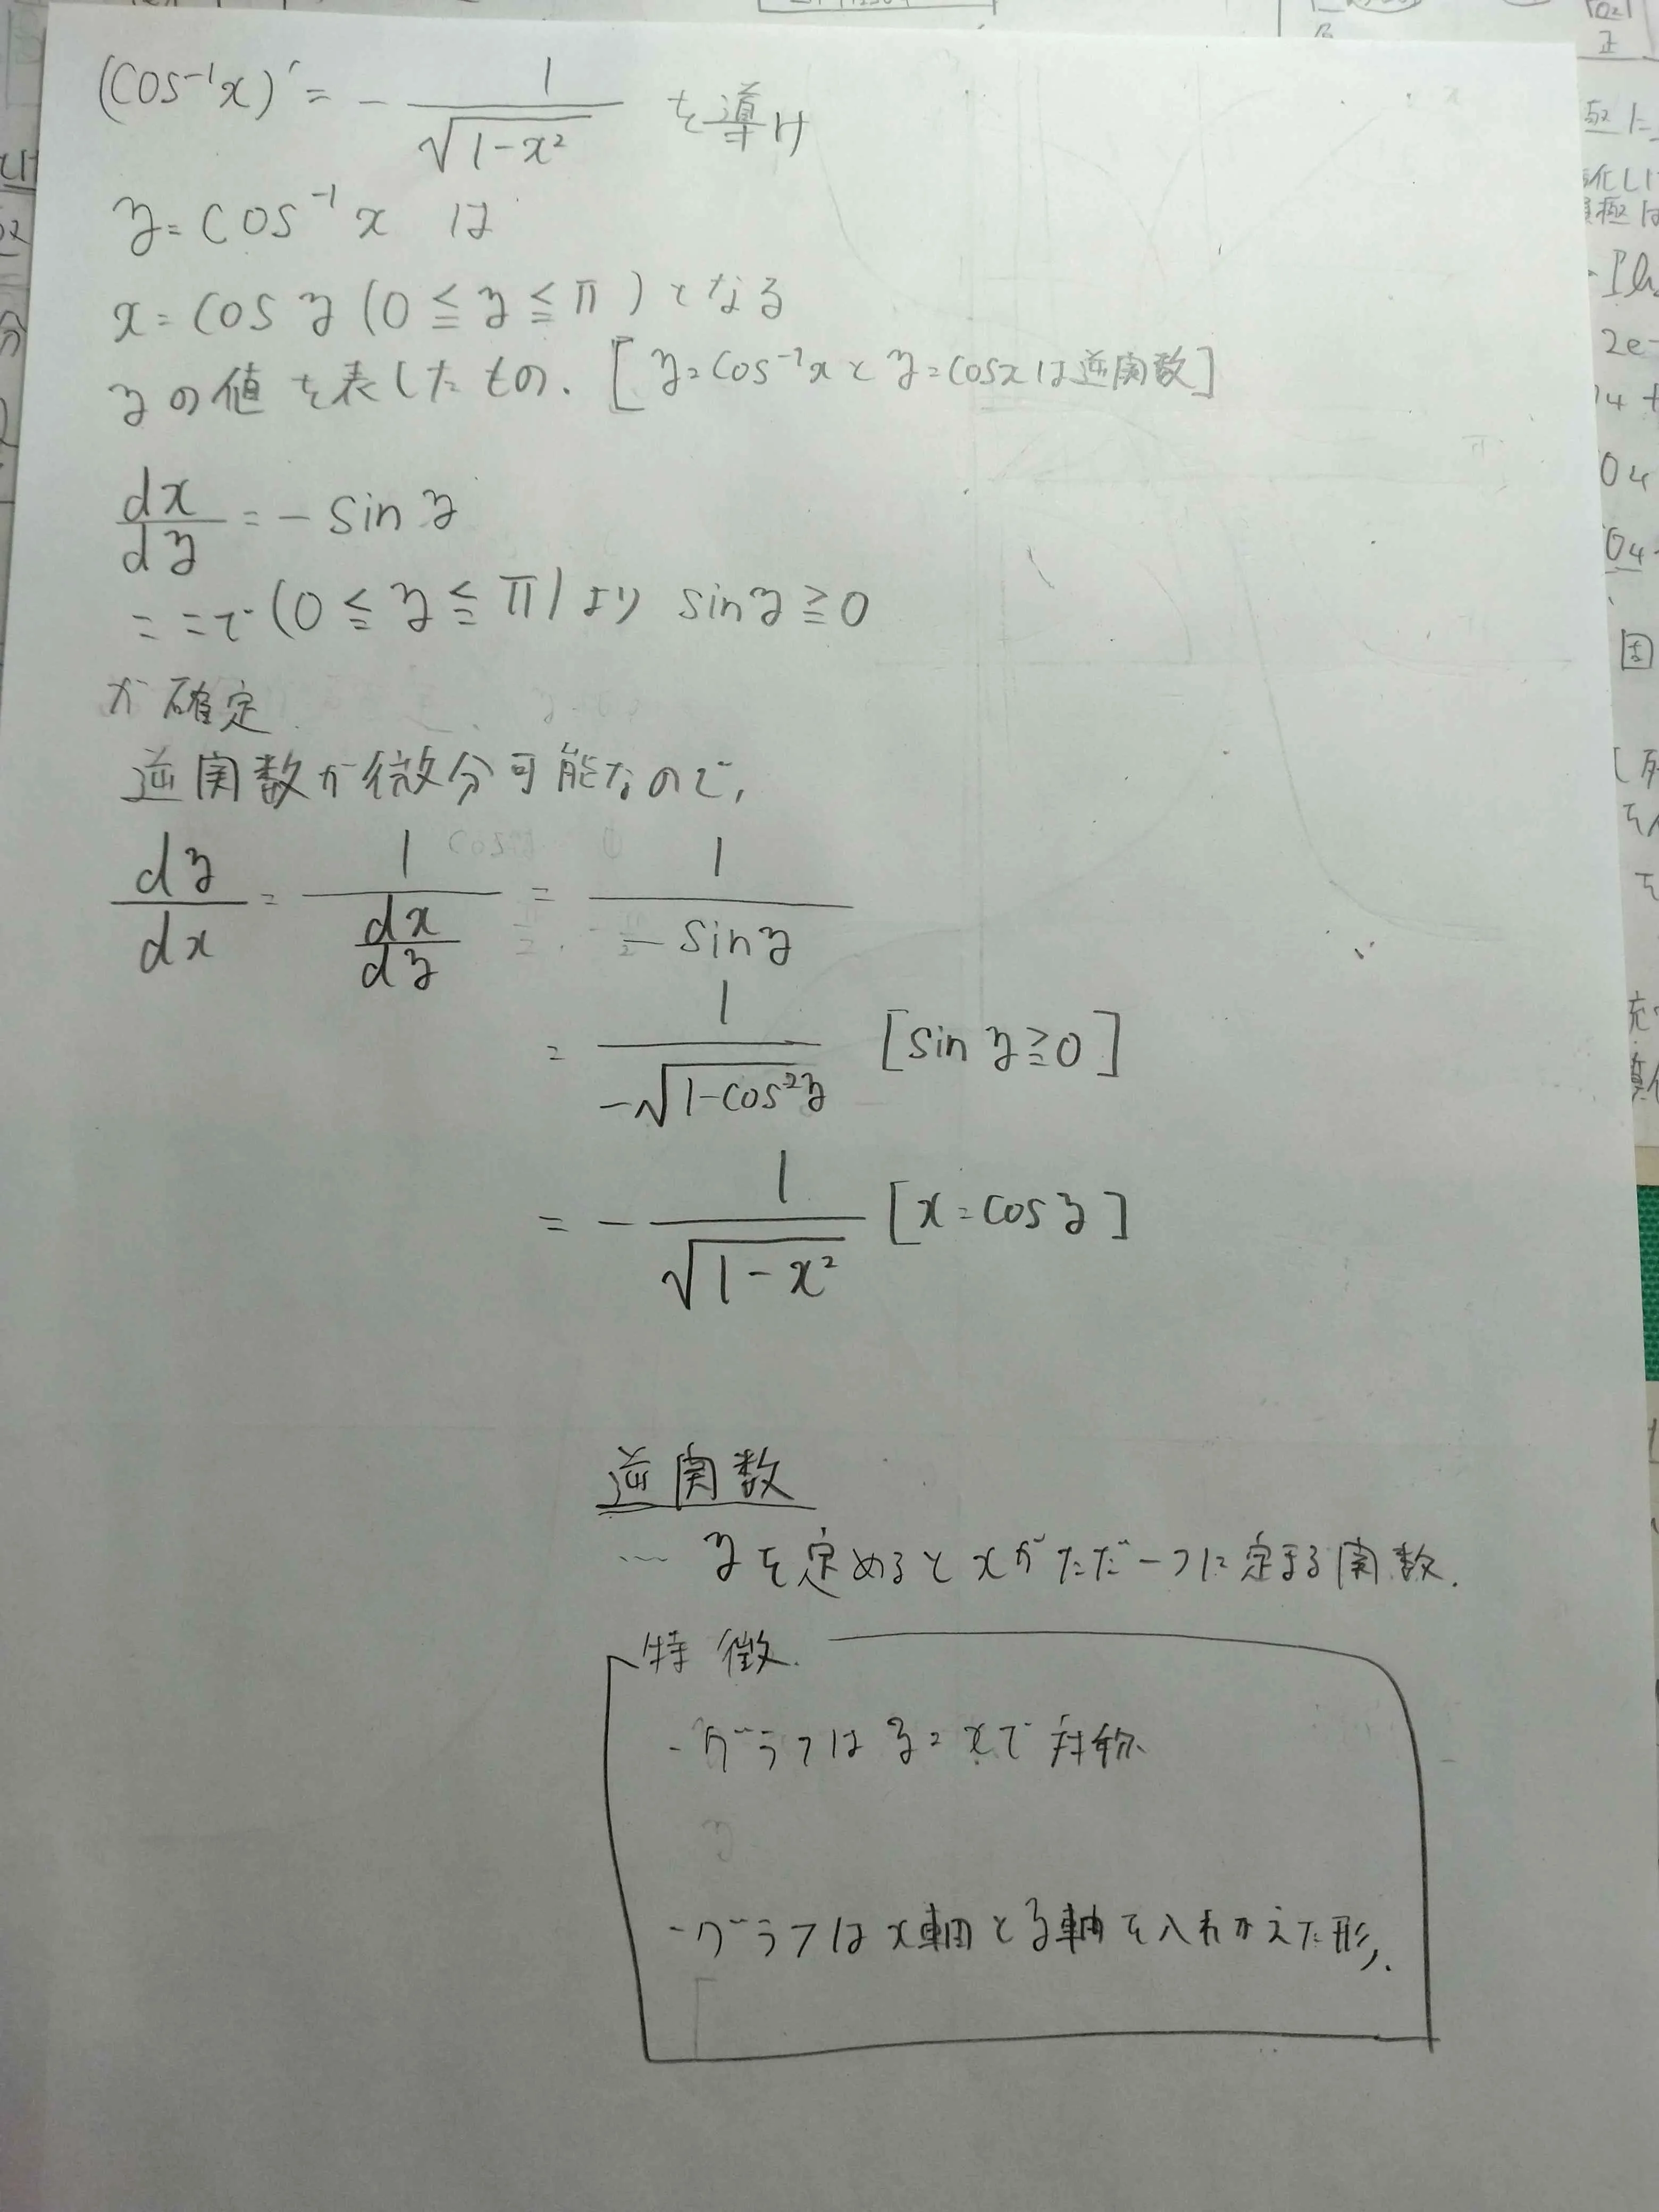 (cos⁻¹x)' = - 1/√(1-x²) を導け
y = cos⁻¹ x は
x = cos y (0 ≦ y ≦ π) となる
yの値を表したもの. [y = cos⁻¹x と y = cosx は逆関数]
dx/dy = - sin y
ここで (0 ≦ y ≦ π) より sin y ≧ 0
が確定
逆関数が微分可能なので,
dy/dx = 1/(dx/dy) = 1/(- sin y)
= 1/(-√(1-cos²y)) [sin y ≧ 0]
= - 1/√(1-x²) [x = cos y]
逆関数
… yを定めるとxがただ一つに定まる関数.
特徴.
- グラフは y = x で対称.
- グラフは x軸と y軸を入れかえた形.